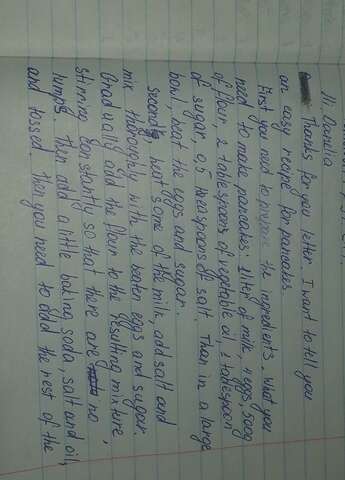 Hi Danila
Thanks for you letter. I want to tell you
an easy recipe for pancakes.
First you need to prepare the ingredients. What you
need to make pancakes: liter of milk, 4 eggs, 500g
of flour, 2 tablespoons of vegetable oil, 1 tablespoon
of sugar, 0,5 teaspoons of salt. Than in a large
bowl, beat the eggs and sugar.
Secondly, heat some of the milk, add salt and
mix thoroughly with the beaten eggs and sugar.
Gradually add the flour to the resulting mixture,
stirring constantly so that there are no
lumps. Then add a little baking soda, salt and oil,
and tossed. Then you need to add the rest of the